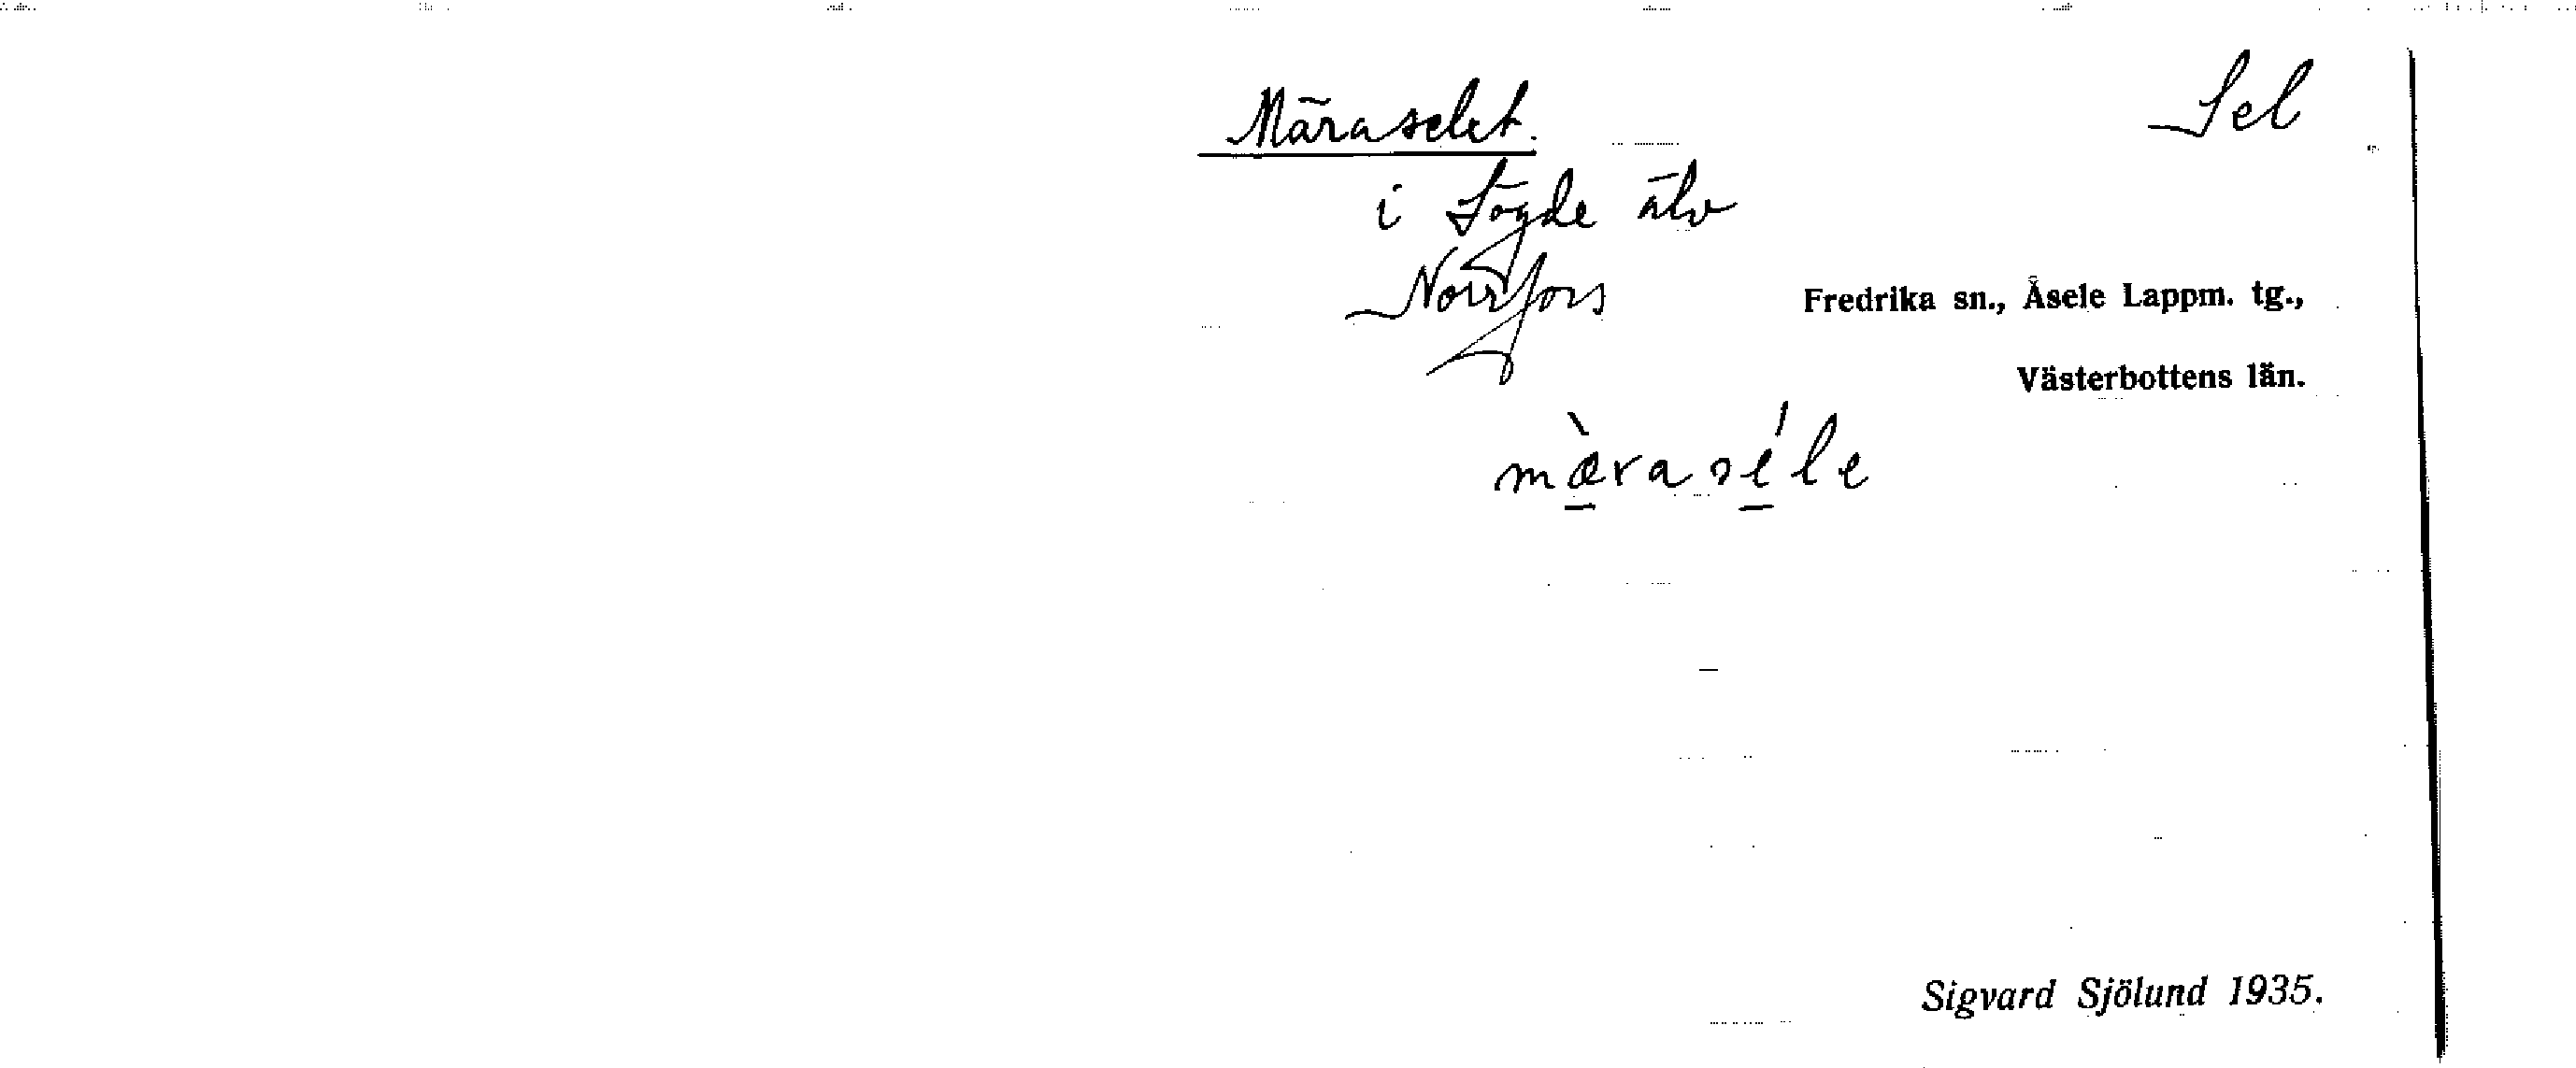 Märaselet.
Sel
i Lögde älv
Norrfors
Fredrika sn., Åsele Lappm. tg.,
Västerbottens län.
mæ̀raséle
Sigvard Sjölund 1935.